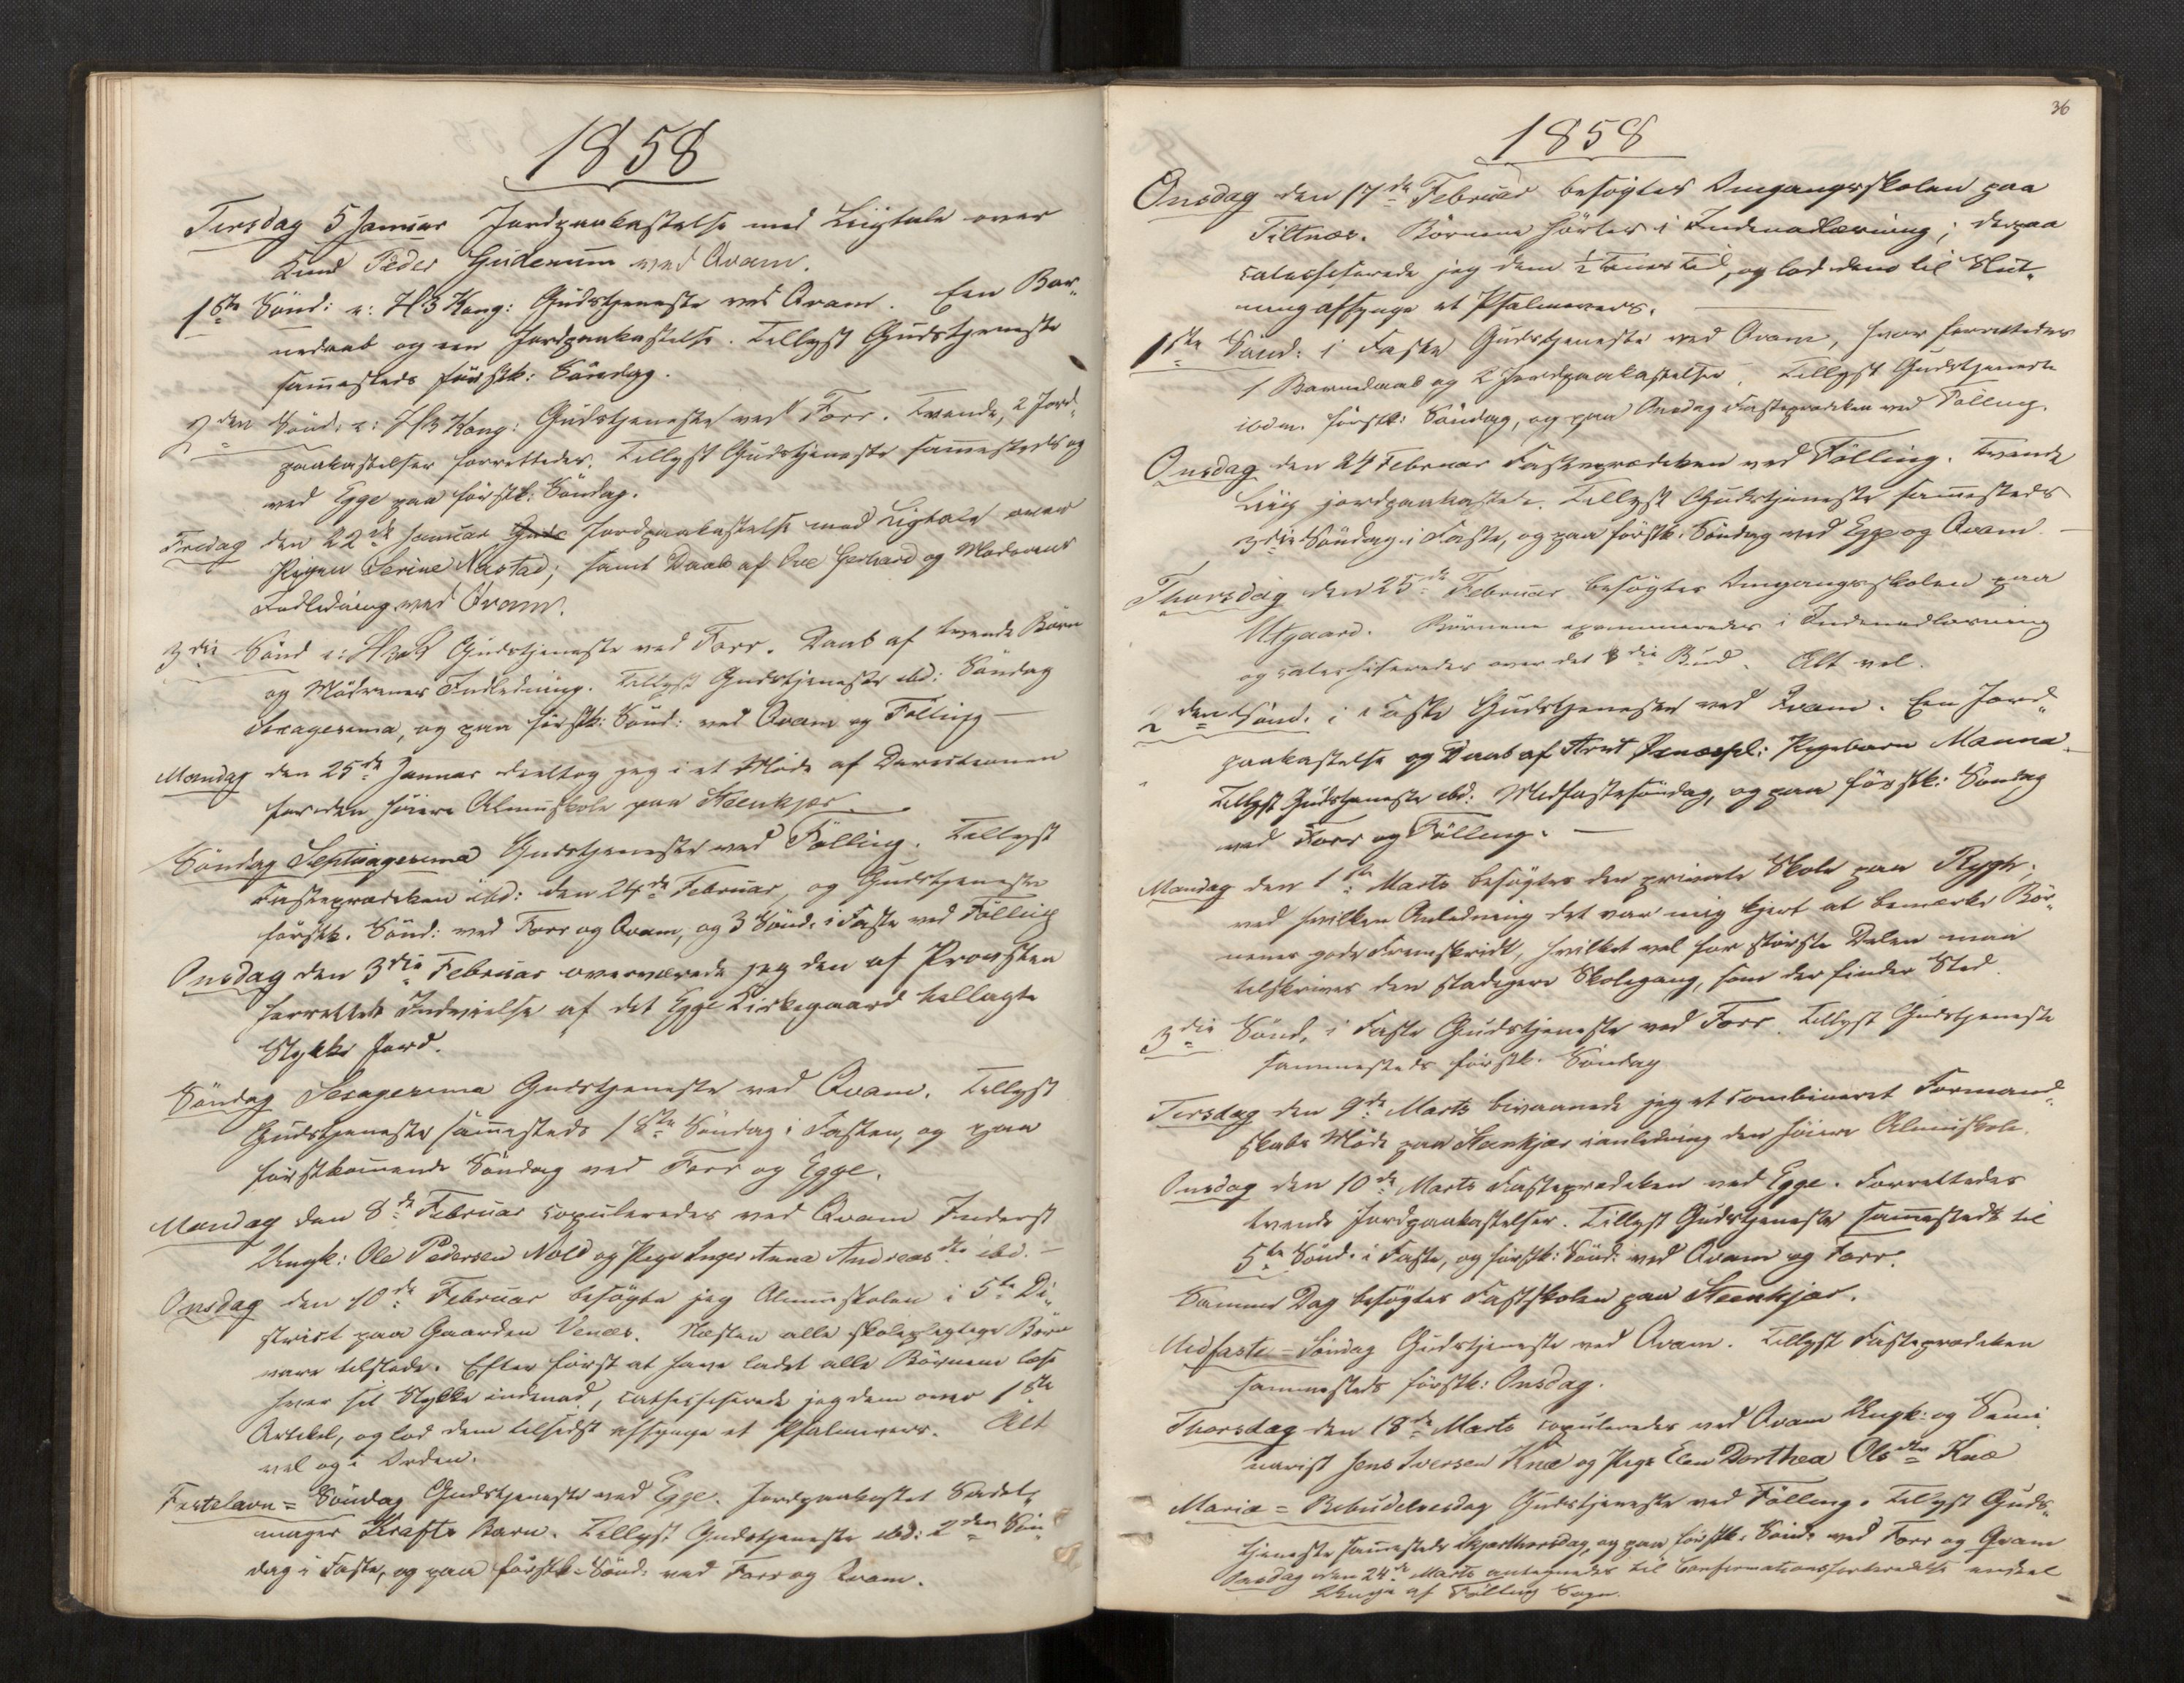 1858
Tirsdag 5 Januar Jordpaakastelse med Liigtale over
Knud Peder Guderum ved Qvam.
1ste Sönd: e: H3 Kong: Gudstjeneste ved Qvam. Een Bar-
nedaab og een Jordpaakastelse. Tillyst Gudstjeneste
sammesteds förstk: Söndag.
2den Sönd: e: H3 Kong: Gudstjeneste ved Forr. Tvende, 2 Jord-
paakastelser forrettedes. Tillyst Gudstjeneste sammesteds og
ved Egge paa förstk: Söndag.
Fredag den 22de Januar Jordpaakastelse med Ligtale over
Pigen Serine Nastad; samt Daab af Ove Gerhard og Moderens
Indledning ved Qvam.
3die Sönd e: H3K Gudstjeneste ved Forr. Daab af tvende Börn
og Mödrenes Indledning. Tillyst Gudstjeneste ibd: Söndag
Sexagesima, og paa förstk: Sönd: ved Qvam og Fölling —
Mandag den 25de Januar deeltog jeg i et Möde af Directionen
for den höiere Almuskole paa Steenkjær.
Söndag Septuagesima Gudstjeneste ved Fölling. Tillyst
Fasteprædiken ibd: den 24de Februar, og Gudstjeneste
förstk. Sönd: ved Forr og Qvam, og 3 Sönd. i Faste ved Fölling
Onsdag den 3die Februar overværede jeg den af Provsten
forrettede Indvielse af det Egge Kirkegaard tillagte
Stykke Jord.
Söndag Sexagesima Gudstjeneste ved Qvam. Tillyst
Gudstjeneste sammesteds 1ste Söndag i Fasten, og paa
förstkommende Söndag ved Forr og Egge.
Mandag den 8de Februar copuleredes ved Qvam Inderst
Ungk: Ole Pedersen Nold og Pige Inger Anna Andreasdtr ibd. —
Onsdag den 10de Februar besögte jeg Almuskolen i 5te Di-
strict paa Gaarden Venæs. Næsten alle skolepligtige Börn
vare tilstede. Efter först at have ladet alle Börnene læse
hver sit Stykke indenad, catheciserede jeg dem over 1ste
Artikel, og lod dem tilsidst afsynge et Psalmevers. Alt
vel og i Orden.
Fastelavn = Söndag Gudstjeneste ved Egge. Jordpaakastet Sadel-
mager Krafts Barn. Tillyst Gudstjeneste ibd: 2den Sön-
dag i Faste, og paa förstk. Sönd. ved Forr og Qvam.
36
1858
Onsdag den 17de Februar besögtes Omgangsskolen paa
Tiltnæs. Börnene hörtes i Indenadlæsning; derpaa
catechiserede jeg dem ½ Times Tid, og lod dem til Slut-
ning afsynge et Psalmevers.
1ste Sönd. i Faste Gudstjeneste ved Qvam, hvor forrettedes
1 Barnedaab og 2 Jordpaakastelser. Tillyst Gudstjeneste
ibdm. förstk: Söndag, og paa Onsdag Fasteprædiken ved Fölling.
Onsdag den 24 Februar Fasteprædiken ved Fölling. Tvende
Liig jordpaakastede. Tillyst Gudstjeneste sammesteds
3die Söndag i Faste, og paa förstk. Söndag ved Egge og Qvam —
Thorsdag den 25de Februar besögtes Omgangsskolen paa
Utgaard. Börnene examineredes i Indenadlæsning
og catechiseredes over det 8die Bud. Alt vel.
2den Sönd. i Faste Gudstjeneste ved Qvam. Een Jord-
paakastelse og Daab af Arnt Pigebarn Manna.
Tillyst Gudstjeneste ibd: Midfastesöndag, og paa förstk: Söndag
ved Forr og Fölling. —
Mandag den 1ste Marts besögtes den private Skole paa Rygh,
ved hvilken Anledning det var mig kjert at bemærke Bör-
nenes gode Fremskridt, hvilket vel for störste Delen maa
tilskrives den stadigere Skolegang, som der finder Sted.
3die Sönd. i Faste Gudstjeneste ved Forr. Tillyst Gudstjeneste
sammesteds förstk. Söndag
Tirsdag den 9de Marts bivaanede jeg et combineret Formand-
skabs Möde paa Steenkjær i anledning den höiere Almuskole.
Onsdag den 10de Marts Fasteprædiken ved Egge. Forrettedes
tvende Jordpaakastelser. Tillyst Gudstjeneste sammesteds til
5te Sönd. i Faste, og förstk: Sönd: ved Qvam og Forr.
Samme Dag besögtes Fastskolen paa Steenkjær.
Midfaste-Söndag Gudstjeneste ved Qvam. Tillyst Fasteprædiken
sammesteds förstk: Onsdag.
Thorsdag den 18de Marts copuleredes ved Qvam Ungk: og Semi-
narist Jens Iversen Knæ og Pige Elen Dorthea Olsdtr Knæ
Mariæ = Bebudelsesdag Gudstjeneste ved Fölling. Tillyst Guds-
tjeneste sammesteds Skjærthorsdag, og paa förstk. Sönd. ved Forr og Qvam
Onsdag den 24de Marts antegnedes til Confirmationsforberedelse endeel
Unge af Fölling Sogn.